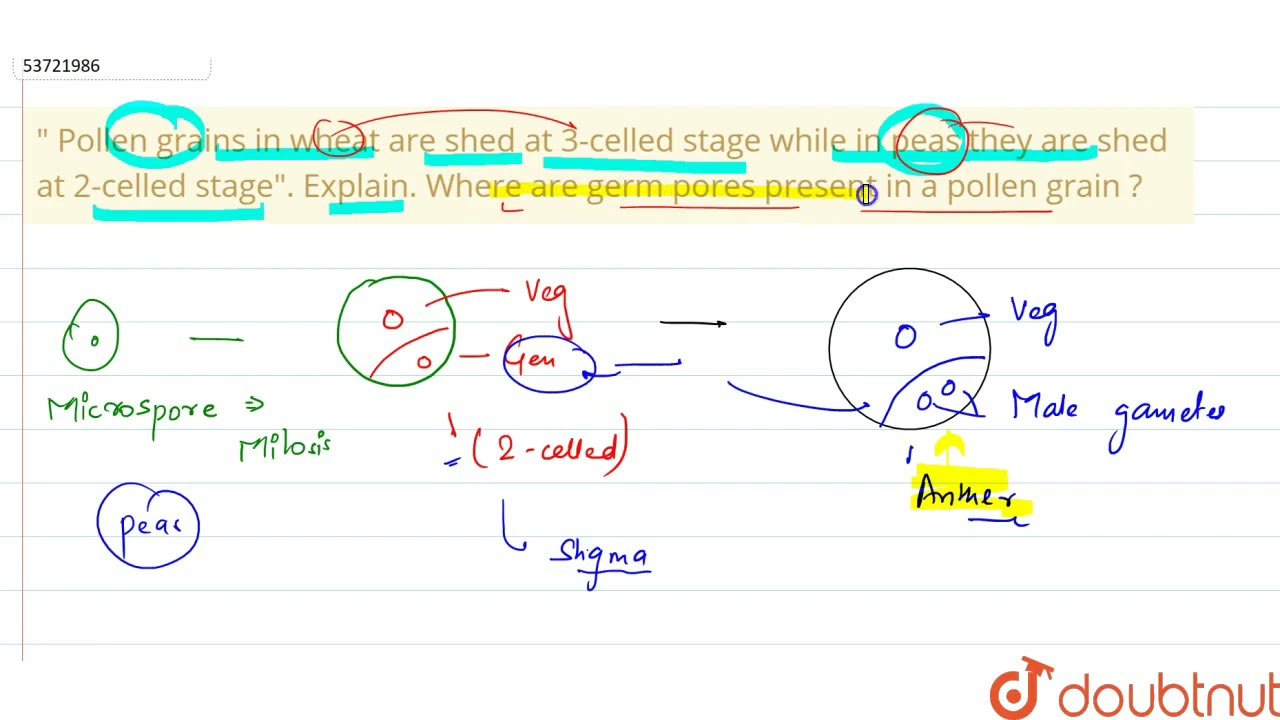 53721986
" Pollen grains in wheat are shed at 3-celled stage while in peas they are shed
at 2-celled stage". Explain. Where are germ pores present in a pollen grain ?
Veg
Gen
Veg
Male gametes
Microspore ⇒
Mitosis
(2-celled)
Anther
peas
Stigma
doubtnut